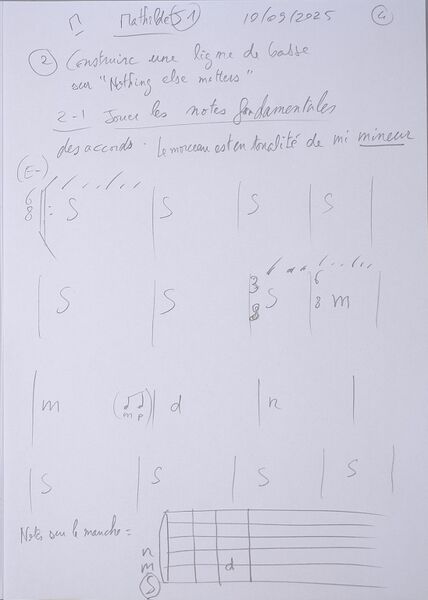 Mathilde (S1) 10/09/2025 4
2 Construire une ligne de basse
sur "Nothing else matters"
2-1 Jouer les notes fondamentales
des accords. Le morceau est en tonalité de mi mineur
(E-)
6 8 S S S S
S S 3 8 S 6 8 m
m (m p) d r
S S S S
Notes sur le manche =
r
m d
S